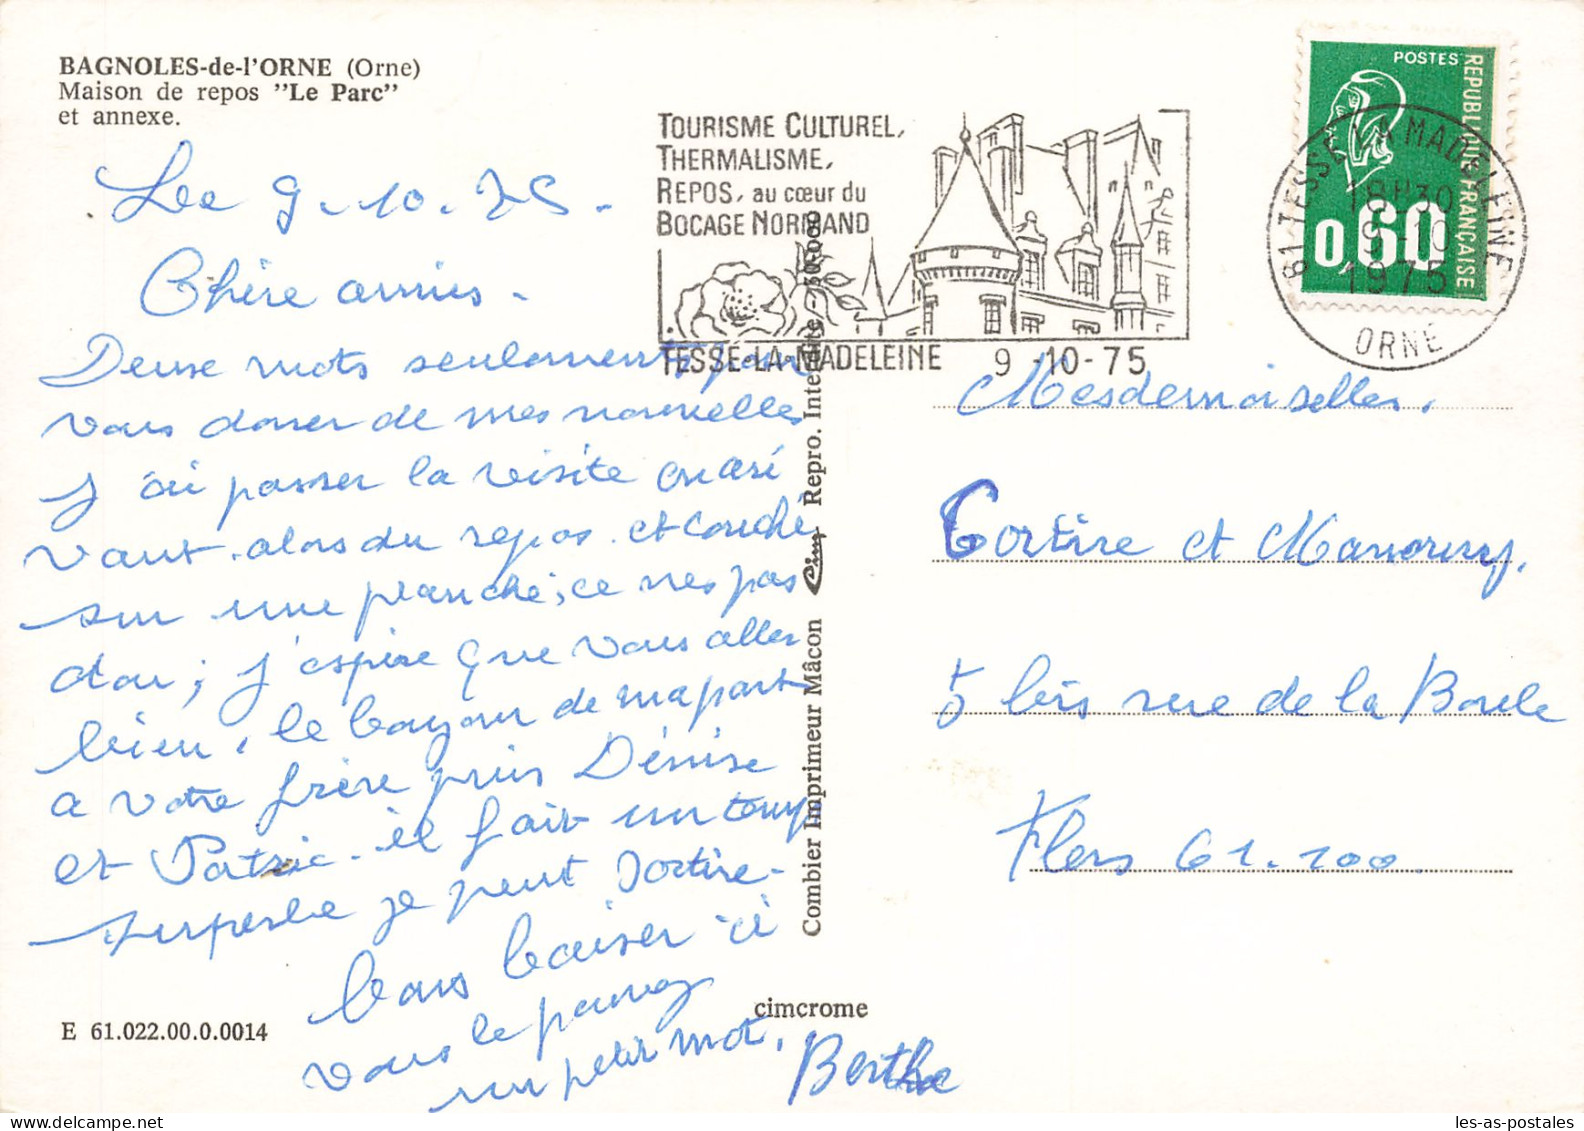 BAGNOLES-de-l'ORNE (Orne)
Maison de repos "Le Parc"
et annexe.
Le 9-10-75-
Chère amies-
Deuse mots seulement pour
vous donner de mes nouvelles
J'ai passer la visite
vant. alors du repos. et couché
sur une planche; ce nes pas
dou; J'espère que vous aller
bien, le bonjour de ma part
a votre frère puis Dénise
et Patric. il fait un temp
superbe je peut sortire-
bons baiser si
vous le pouvez
un petit mot.
Berthe
E 61.022.00.0.0014
Combier Imprimeur Mâcon Cim Repro. Interdite - 30.000
cimcrome
TOURISME CULTUREL,
THERMALISME,
REPOS, au cœur du
BOCAGE NORMAND
TESSE-LA-MADELEINE 9-10-75
POSTES
REPUBLIQUE FRANÇAISE
0,60
61 TESSE LA MADELEINE
18H30
9-10
1975
ORNE
Mesdemoiselles.
et
5 bis rue de la Boule
Flers 61.100.
les-as-postales